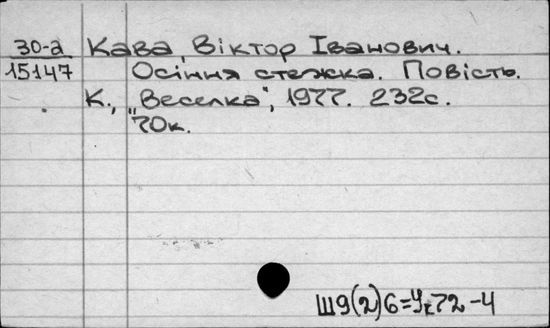 30-а Кава, Віктор Іванович.
15147 Осіння стежка. Повість.
К., „Веселка", 1977. 232с.
70к.
Ш9(2)6=Ук72-4